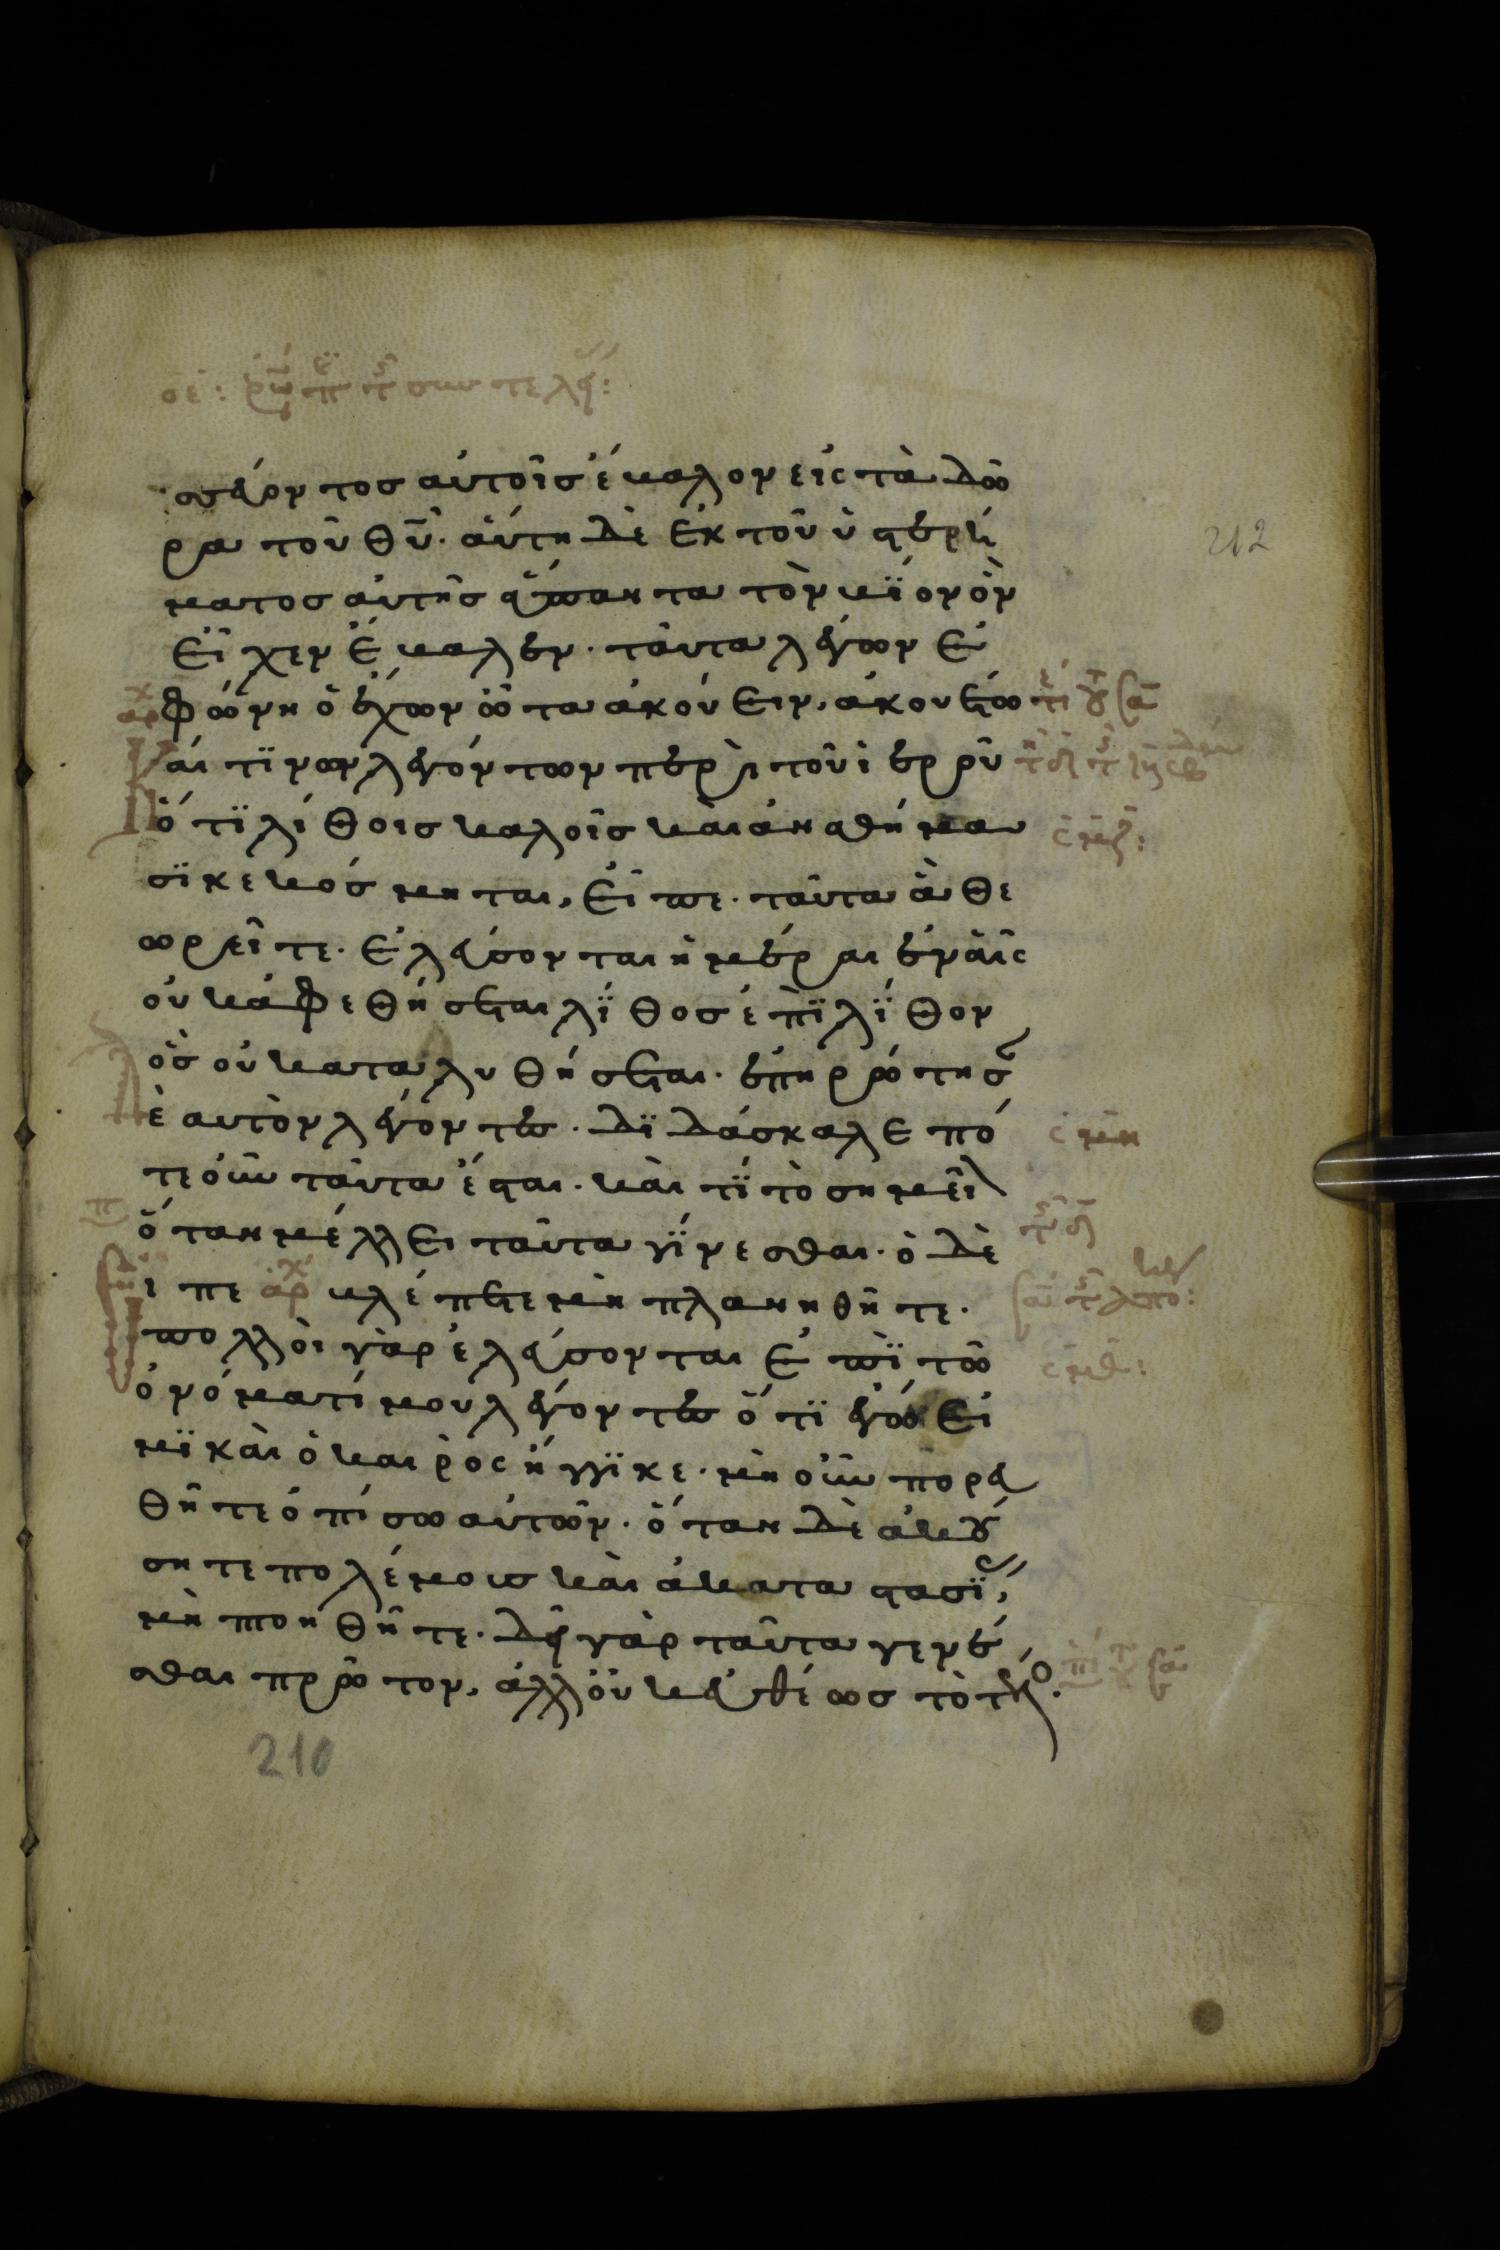 σσεύοντος αὐτοῖς ἔβαλον εἰς τὰ δῶ
ρα τοῦ θῦ· αὕτη δὲ ἐκ τοῦ ὑστερή
ματος αὐτῆς ἅπαντα τὸν βίον ὃν
εἶχεν ἔβαλεν· ταῦτα λέγων ἐ
φώνη ὁ ἔχων ὦτα ἀκούειν, ἀκουέτω
Καί τινων λεγόντων περὶ τοῦ ἱεροῦ
ὅτι λίθοις καλοῖς καὶ ἀναθήμα
σι κεκόσμηται, εἶπε· ταῦτα ἃ θε
ωρεῖτε· ἐλεύσονται ἡμέραι ἐν αἷς
οὐκ ἀφεθήσεται λίθος ἐπὶ λίθον
ὃς οὐ καταλυθήσεται· ἐπηρώτησ
ὲ αὐτὸν λέγοντες· διδάσκαλε πό
τε οὖν ταῦτα ἔσται· καὶ τί τὸ σημεῖ
ὅταν μέλλει ταῦτα γίνεσθαι· ὁ δὲ
εἶπε αρχ βλέπετε μὴ πλανηθῆτε·
πολλοὶ γὰρ ἐλεύσονται ἐπὶ τῷ
ὀνόματί μου λέγοντες ὅτι ἐγώ εἰ
μι καὶ ὁ καιρὸς ἤγγικε· μὴ οὖν πορευ
θῆτε ὀπίσω αὐτῶν· ὅταν δὲ ἀκού
σητε πολέμους καὶ ἀκαταστασί,
μὴ πτοηθῆτε· δεῖ γὰρ ταῦτα γενέ
σθαι πρῶτον, ἀλλ' οὐκ εὐθέως τὸ τέλο·
212
210